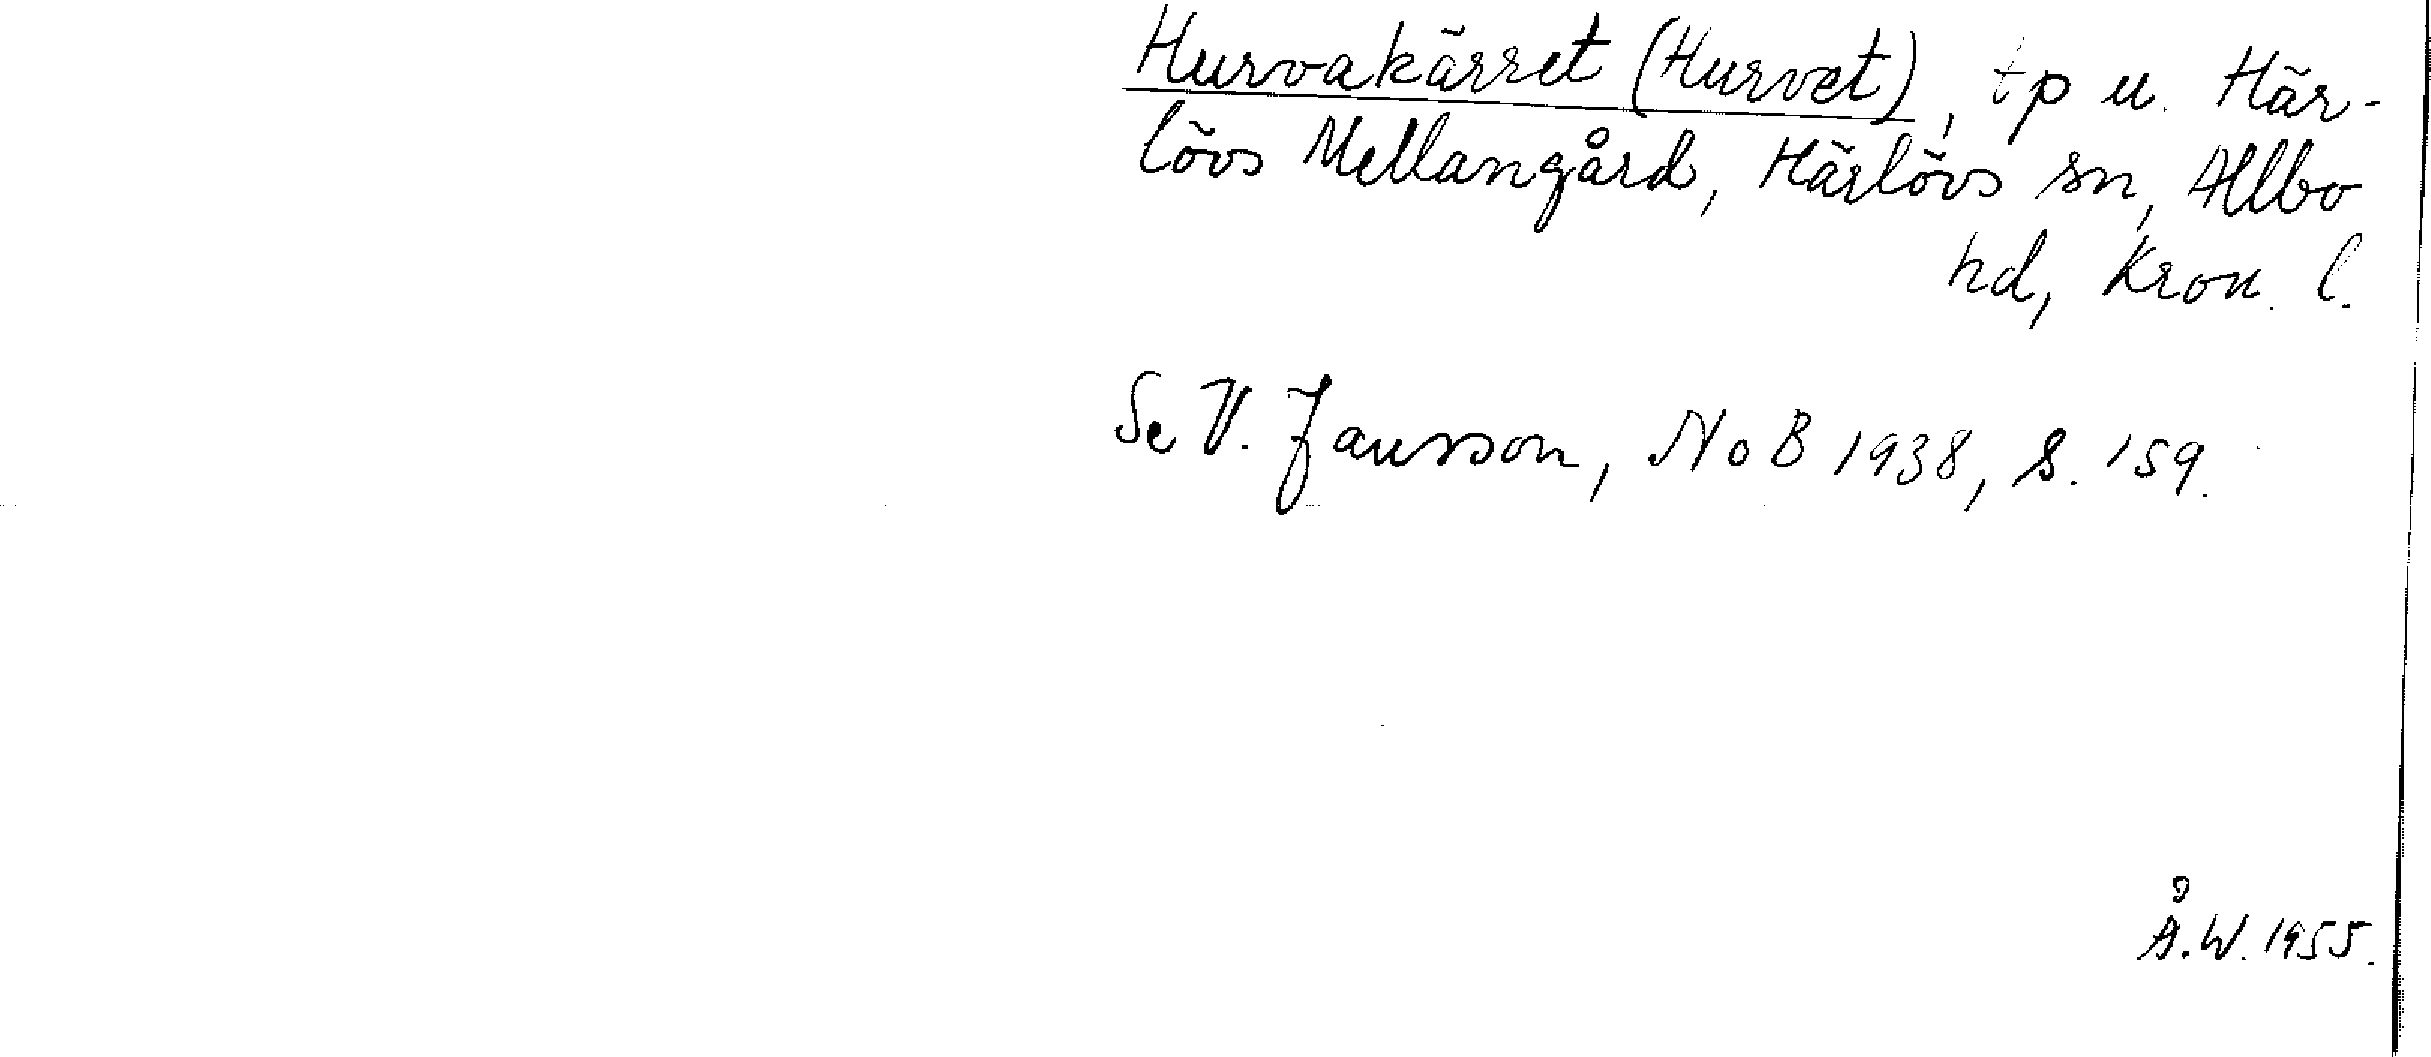 Hurvakärret (Hurvet), tp u. Här-
lövs Mellangård, Härlövs sn, Allbo
hd, Kron. l.
Se V. Jansson, NoB 1938, s. 159.
Å.W. 1955.